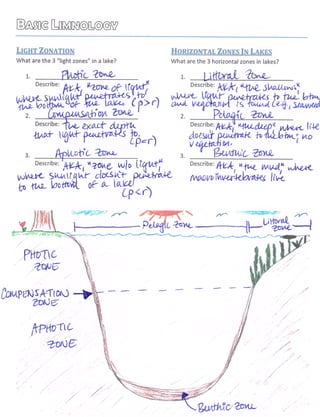 BASIC LIMNOLOGY
LIGHT ZONATION
What are the 3 "light zones" in a lake?
1. Photic Zone
Describe: AKA, "zone of light,"
where sunlight penetrates to
the bottom of the lake (p>r)
2. Compensation Zone
Describe: The exact depth
that light penetrates to.
(p=r)
3. Aphotic Zone
Describe: AKA, "zone w/o light,"
where sunlight doesn't penetrate
to the bottom of a lake
(p<r)
HORIZONTAL ZONES IN LAKES
What are the 3 horizontal zones in lakes?
1. Littoral Zone
Describe: AKA, "the shallows"
where light penetrates to the btm
and vegetation is found (e.g., seaweed
2. Pelagic Zone
Describe: AKA, "the deep" where lite
doesn't penetrate to the btm; no
vegetation.
3. Benthic Zone
Describe: AKA, "the mud," where
macroinvertebrates live
Pelagic Zone
Littoral
Zone
PHOTIC
ZONE
COMPENSATION
ZONE
APHOTIC
ZONE
Benthic Zone